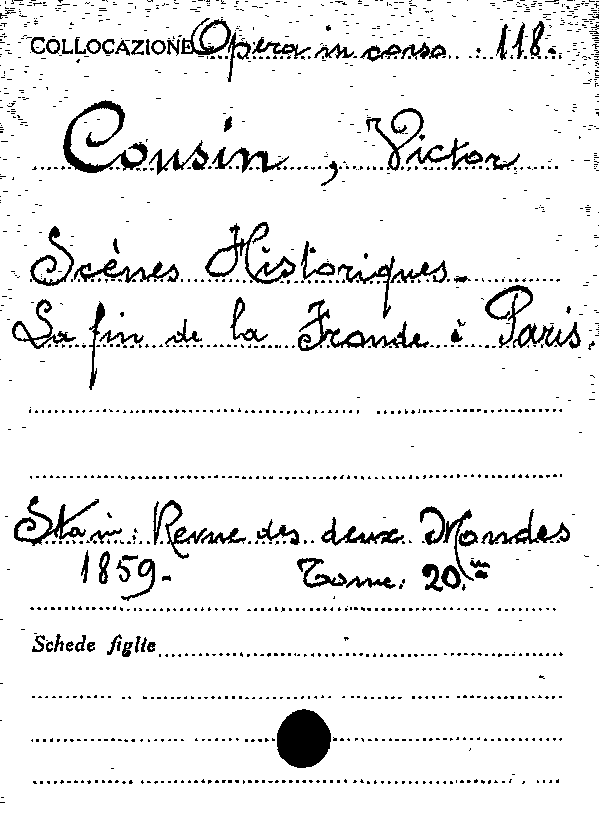 COLLOCAZIONE Opera in corso . 118.
Cousin, Victor
Scènes Historiques.
La fin de la Fronde à Paris.
Sta in: Revue des deux Mondes
1859. Tome. 20.me
Schede figlie